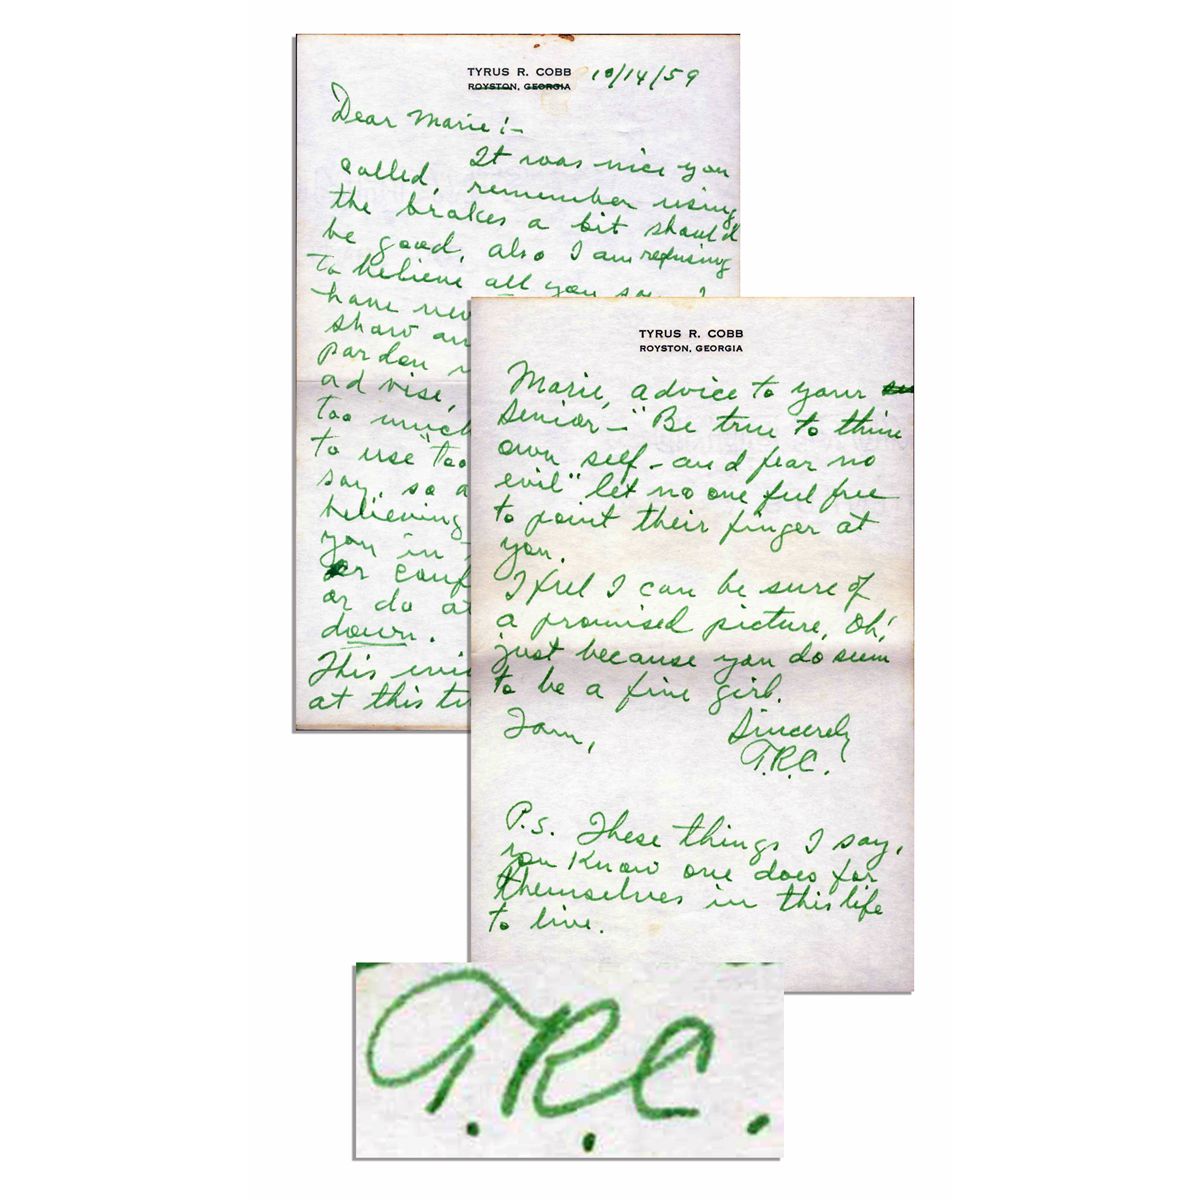 TYRUS R. COBB
ROYSTON, GEORGIA
10/14/59
Dear Marie :-
It was nice you
called, remember using
the brakes a bit should
be good, also I am refusing
to believe all you say I
have nev
show an
pardon
advise,
too much
to use "too
say, so a
believing
you in
or conf
or do at
down.
This
at this
TYRUS R. COBB
ROYSTON, GEORGIA
Marie, advice to your
Senior - "Be true to thine
own self - and fear no
evil" let no one feel free
to point their finger at
you.
I feel I can be sure of
a promised picture, Oh!
just because you do seem
to be a fine girl.
I am, Sincerely
T.R.C.
P.S. These things I say,
you know one does for
themselves in this life
to live.
T.R.C.